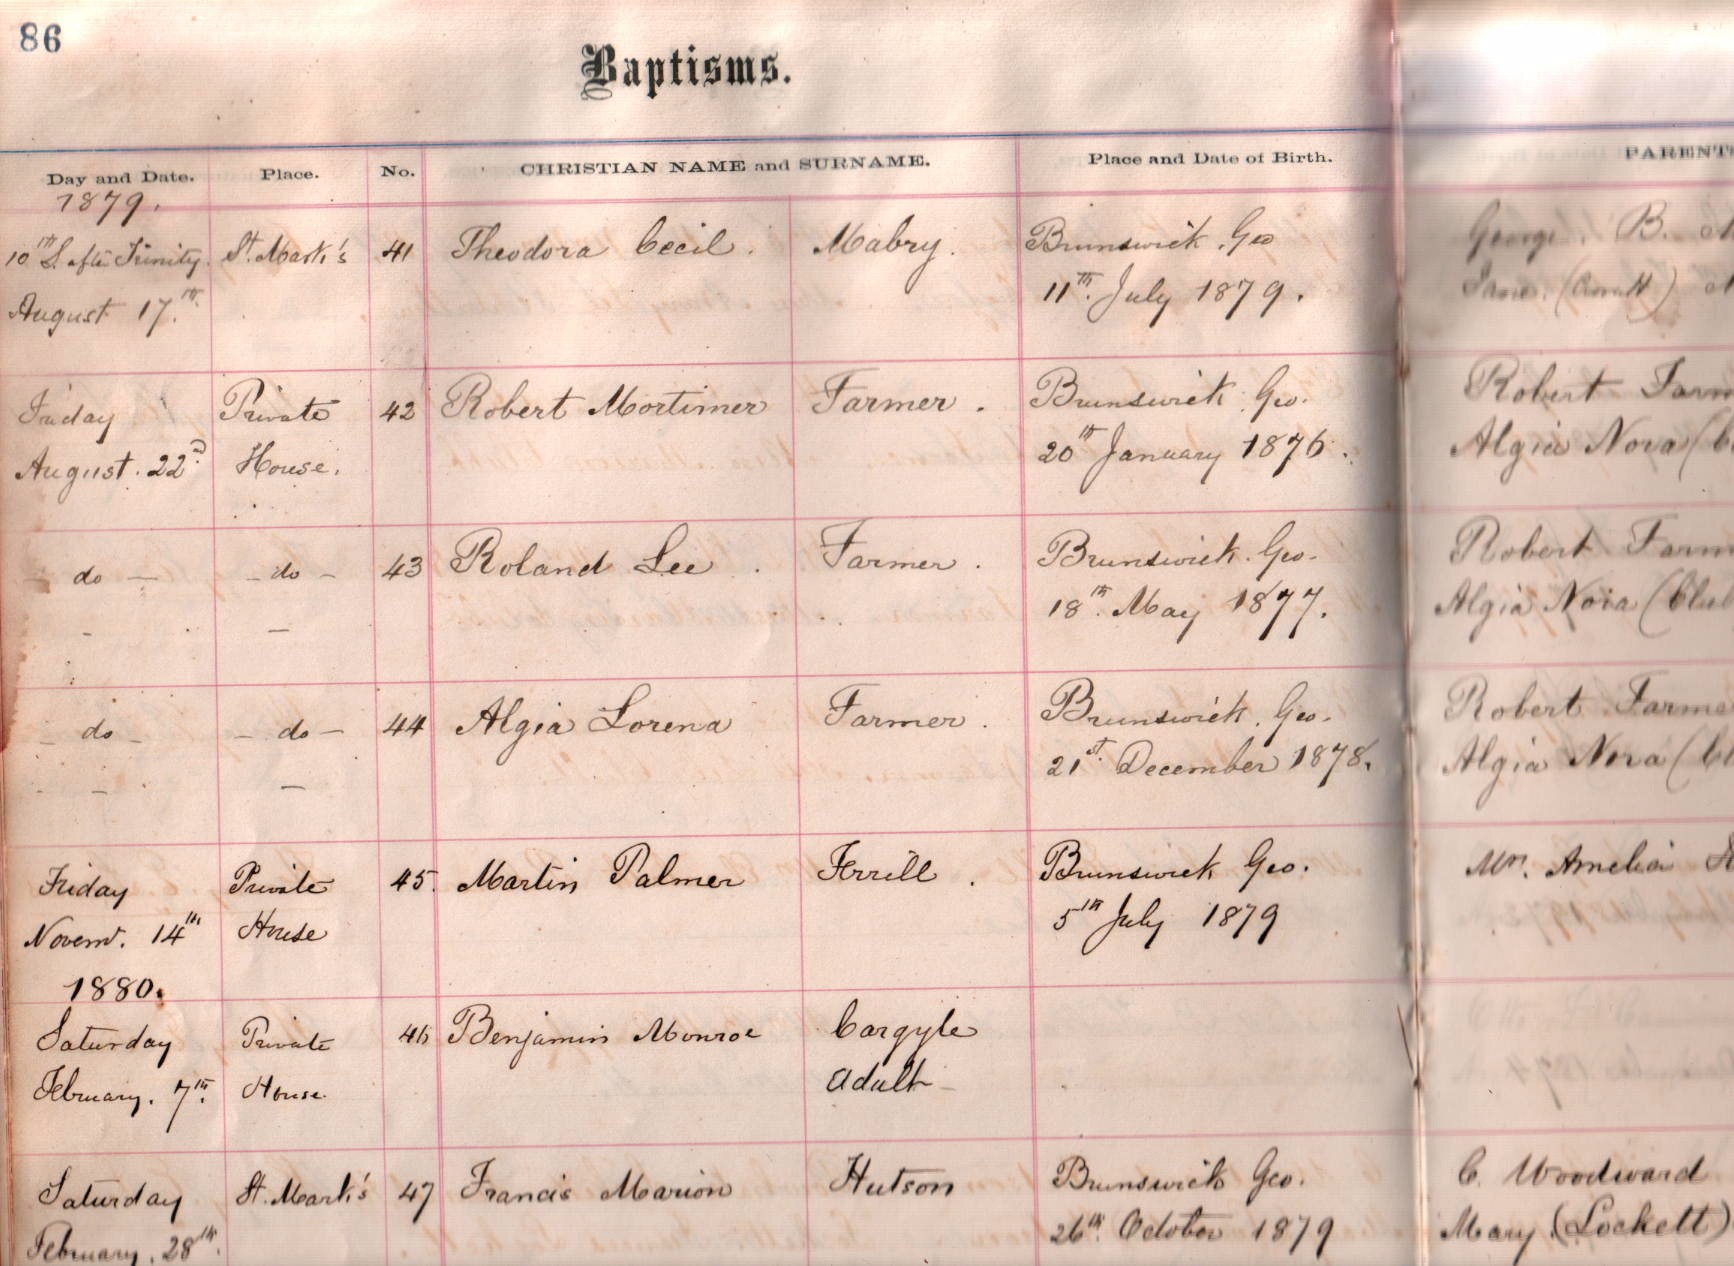 86
Baptisms.
Day and Date. Place. No. CHRISTIAN NAME and SURNAME. Place and Date of Birth. PARENT
1879.
10th S. after Trinity St. Mark's 41 Theodora Cecil. Mabry. Brunswick, Geo George. B.
August 17th. 11th July 1879. Jane.
Friday Private 42 Robert Mortimer Farmer. Brunswick, Geo. Robert Farm
August. 22d. House. 20th January 1876. Algia Nora
- do - - do - 43 Roland Lee. Farmer. Brunswick. Geo. Robert Farm
18th. May 1877. Algia Nora (Club
- do - - do - 44 Algia Lorena Farmer. Brunswick, Geo. Robert Farme
21st. December 1878. Algia Nora (Cl
Friday Private 45. Martin Palmer Ferrill. Brunswick Geo. Mrs. Amelia
Novem. 14th House 5th July 1879
1880.
Saturday Private 46 Benjamin Monroe Cargyle
February. 7th. House. Adult
Saturday St. Mark's 47 Francis Marion Hutson Brunswick Geo. C. Woodward
February. 28th. 26th. October 1879 Mary (Lockett)